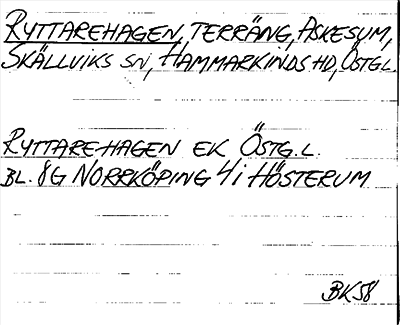 RYTTAREHAGEN, TERRÄNG, ASKESUM,
SKÄLLVIKS SN, HAMMARKINDS HD, ÖSTGL.
RYTTAREHAGEN EK ÖSTG.L.
BL. 8G NORRKÖPING 4i HÖSTERUM
BK58